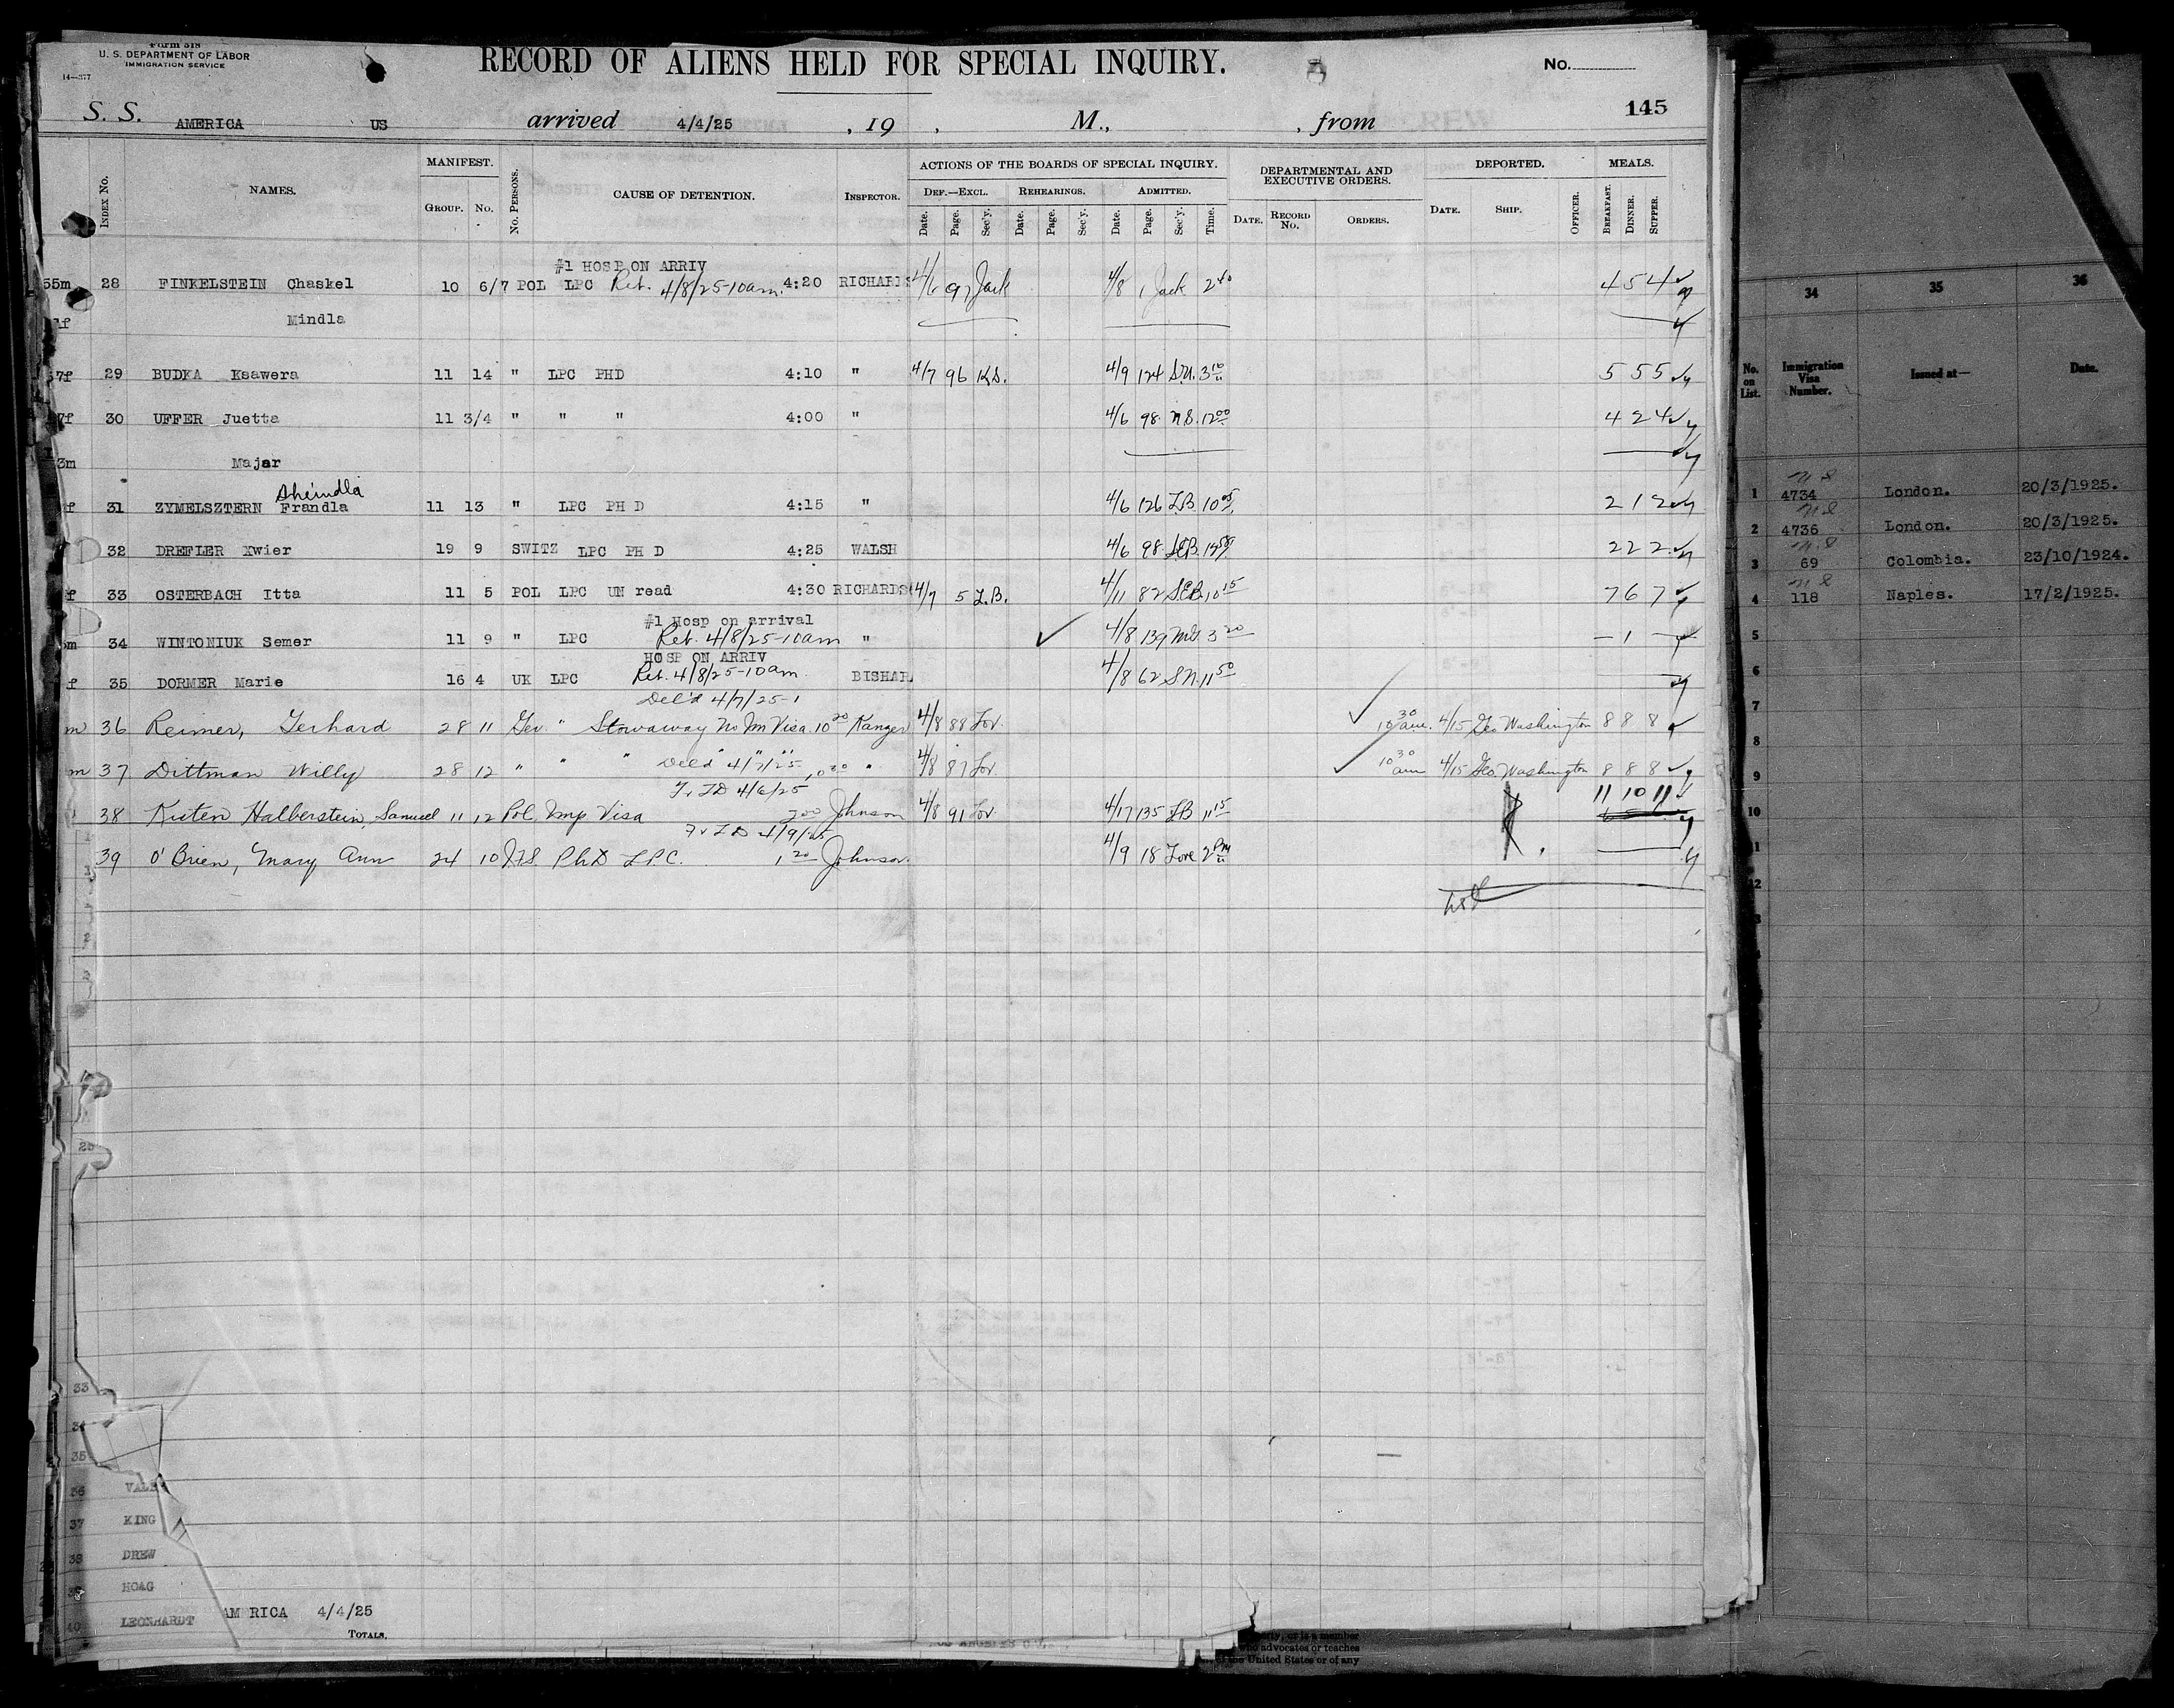 Form 518
U. S. DEPARTMENT OF LABOR
IMMIGRATION SERVICE
14—377
RECORD OF ALIENS HELD FOR SPECIAL INQUIRY.
No.
145
S. S. AMERICA US arrived 4/4/25 , 19 , M., , from
INDEX No. NAMES. MANIFEST. GROUP. No. No. PERSONS. CAUSE OF DETENTION. INSPECTOR. ACTIONS OF THE BOARDS OF SPECIAL INQUIRY. DEF.—EXCL. Date. Page. Sec'y. REHEARINGS. Date. Page. Sec'y. ADMITTED. Date. Page. Sec'y. Time. DEPARTMENTAL AND EXECUTIVE ORDERS. DATE. RECORD No. ORDERS. DEPORTED. DATE. SHIP. OFFICER. MEALS. BREAKFAST. DINNER. SUPPER.
#1 HOSP ON ARRIV
55m 28 FINKELSTEIN Chaskel 10 6/7 POL LPC Ret. 4/8/25-10am. 4:20 RICHARDS 4/6 97 Jack 4/8 1 Jack 2 40 4 5 4
Mindla
29 BUDKA Ksawera 11 14 " LPC PHD 4:10 " 4/7 96 K.S. 4/9 124 S.N. 3 10 5 5 5
30 UFFER Juetta 11 3/4 " " " 4:00 " 4/6 98 N.S. 12 00 4 2 4
3m Majer
Sheindla
31 ZYMELSZTERN Frandla 11 13 " LPC PH D 4:15 " 4/6 126 L.B. 10 05 2 1 2
32 DREFLER Xwier 19 9 SWITZ LPC PH D 4:25 WALSH 4/6 98 2 2 2
33 OSTERBACH Itta 11 5 POL LPC UN read 4:30 RICHARDS 4/7 5 L.B. 4/11 82 S.E.B. 10 15 7 6 7
#1 Hosp on arrival
34 WINTONIUK Semer 11 9 " LPC Ret. 4/8/25-10am " 4/8 139 3 20 — 1 —
HOSP ON ARRIV
35 DORMER Marie 16 4 UK LPC Ret. 4/8/25-10am. BISHAR 4/8 62 S N. 11 50
Del'd 4/7/25-1
m 36 Reimer, Gerhard 28 11 Ger. " Stowaway No Im Visa 10 20 Kanger 4/8 88 Lov. 10 30 am. 4/15 Geo Washington 8 8 8
Del'd 4/7/25
m 37 Dittman Willy 28 12 " " " 10 20 " 4/8 87 Lov. 10 30 am 4/15 Geo. Washington 8 8 8
TD 4/6/25 11 10 11
38 Kuten Halberstein, Samuel 11 12 Pol. Imp Visa 3 00 Johnson 4/8 91 Lov. 4/17 135 LB 11 15
TD 4/9/25
39 O'Brien, Mary Ann 24 10 IFS PhD LPC. 1 20 Johnson 4/9 18 Love 2 PM
25
33
35
36 VALE
37 KING
38 DREW
HOAG
40 LEONHARDT
AMERICA 4/4/25
TOTALS.
34 35 36
No. on List. Immigration Visa Number. Issued at— Date.
1 4734 London. 20/3/1925.
2 4736 London. 20/3/1925.
3 69 Colombia. 23/10/1924.
4 118 Naples. 17/2/1925.
5
6
7
8
9
10
or is a member
who advocates or teaches
the United States or of any